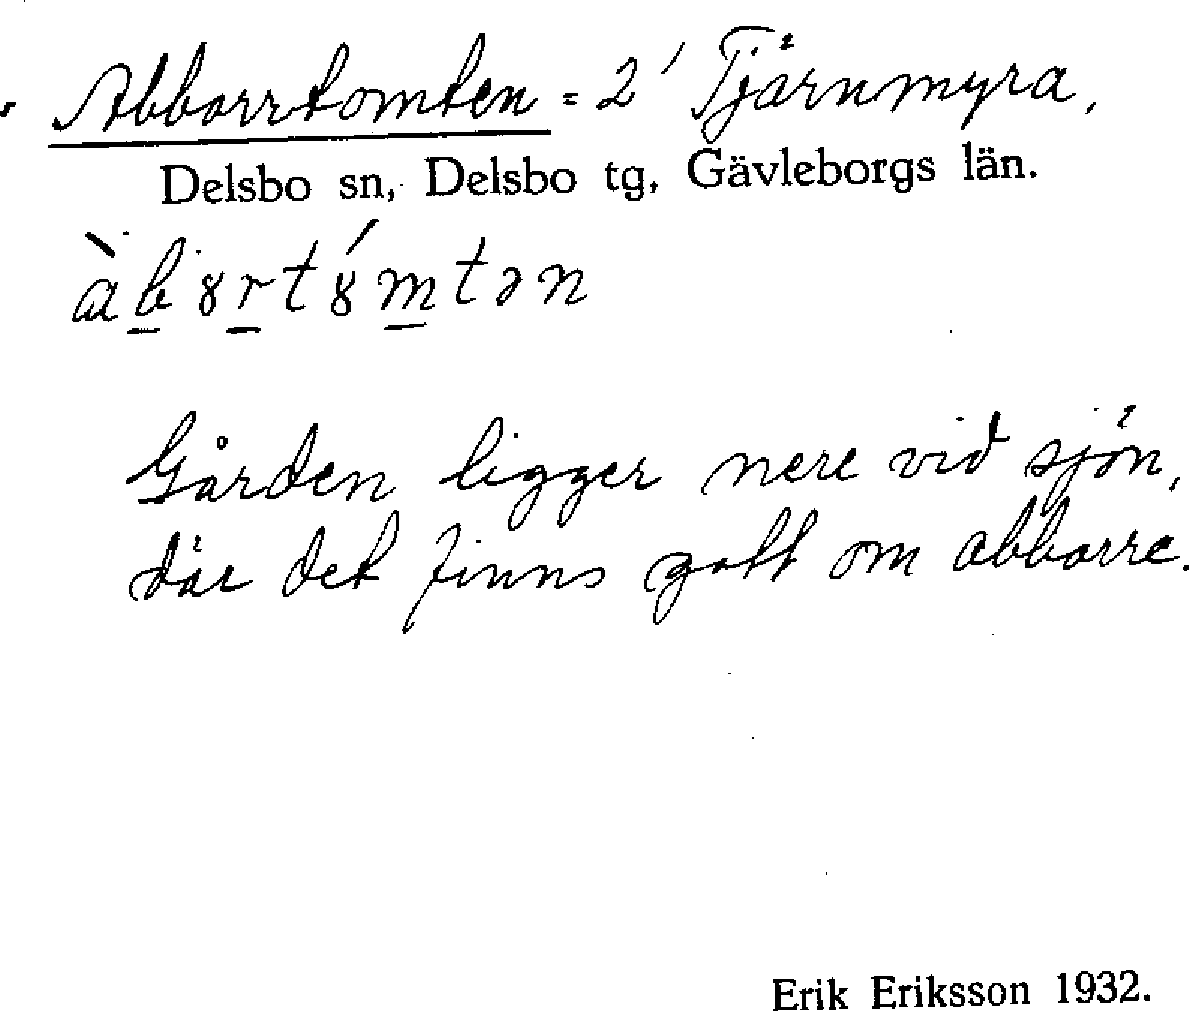 Abborrtomten = 2' Tjärnmyra,
Delsbo sn, Delsbo tg, Gävleborgs län.
àb̲ȣr̲tȣ́m̲tən
Gården ligger nere vid sjön,
där det finns gott om abborre.
Erik Eriksson 1932.